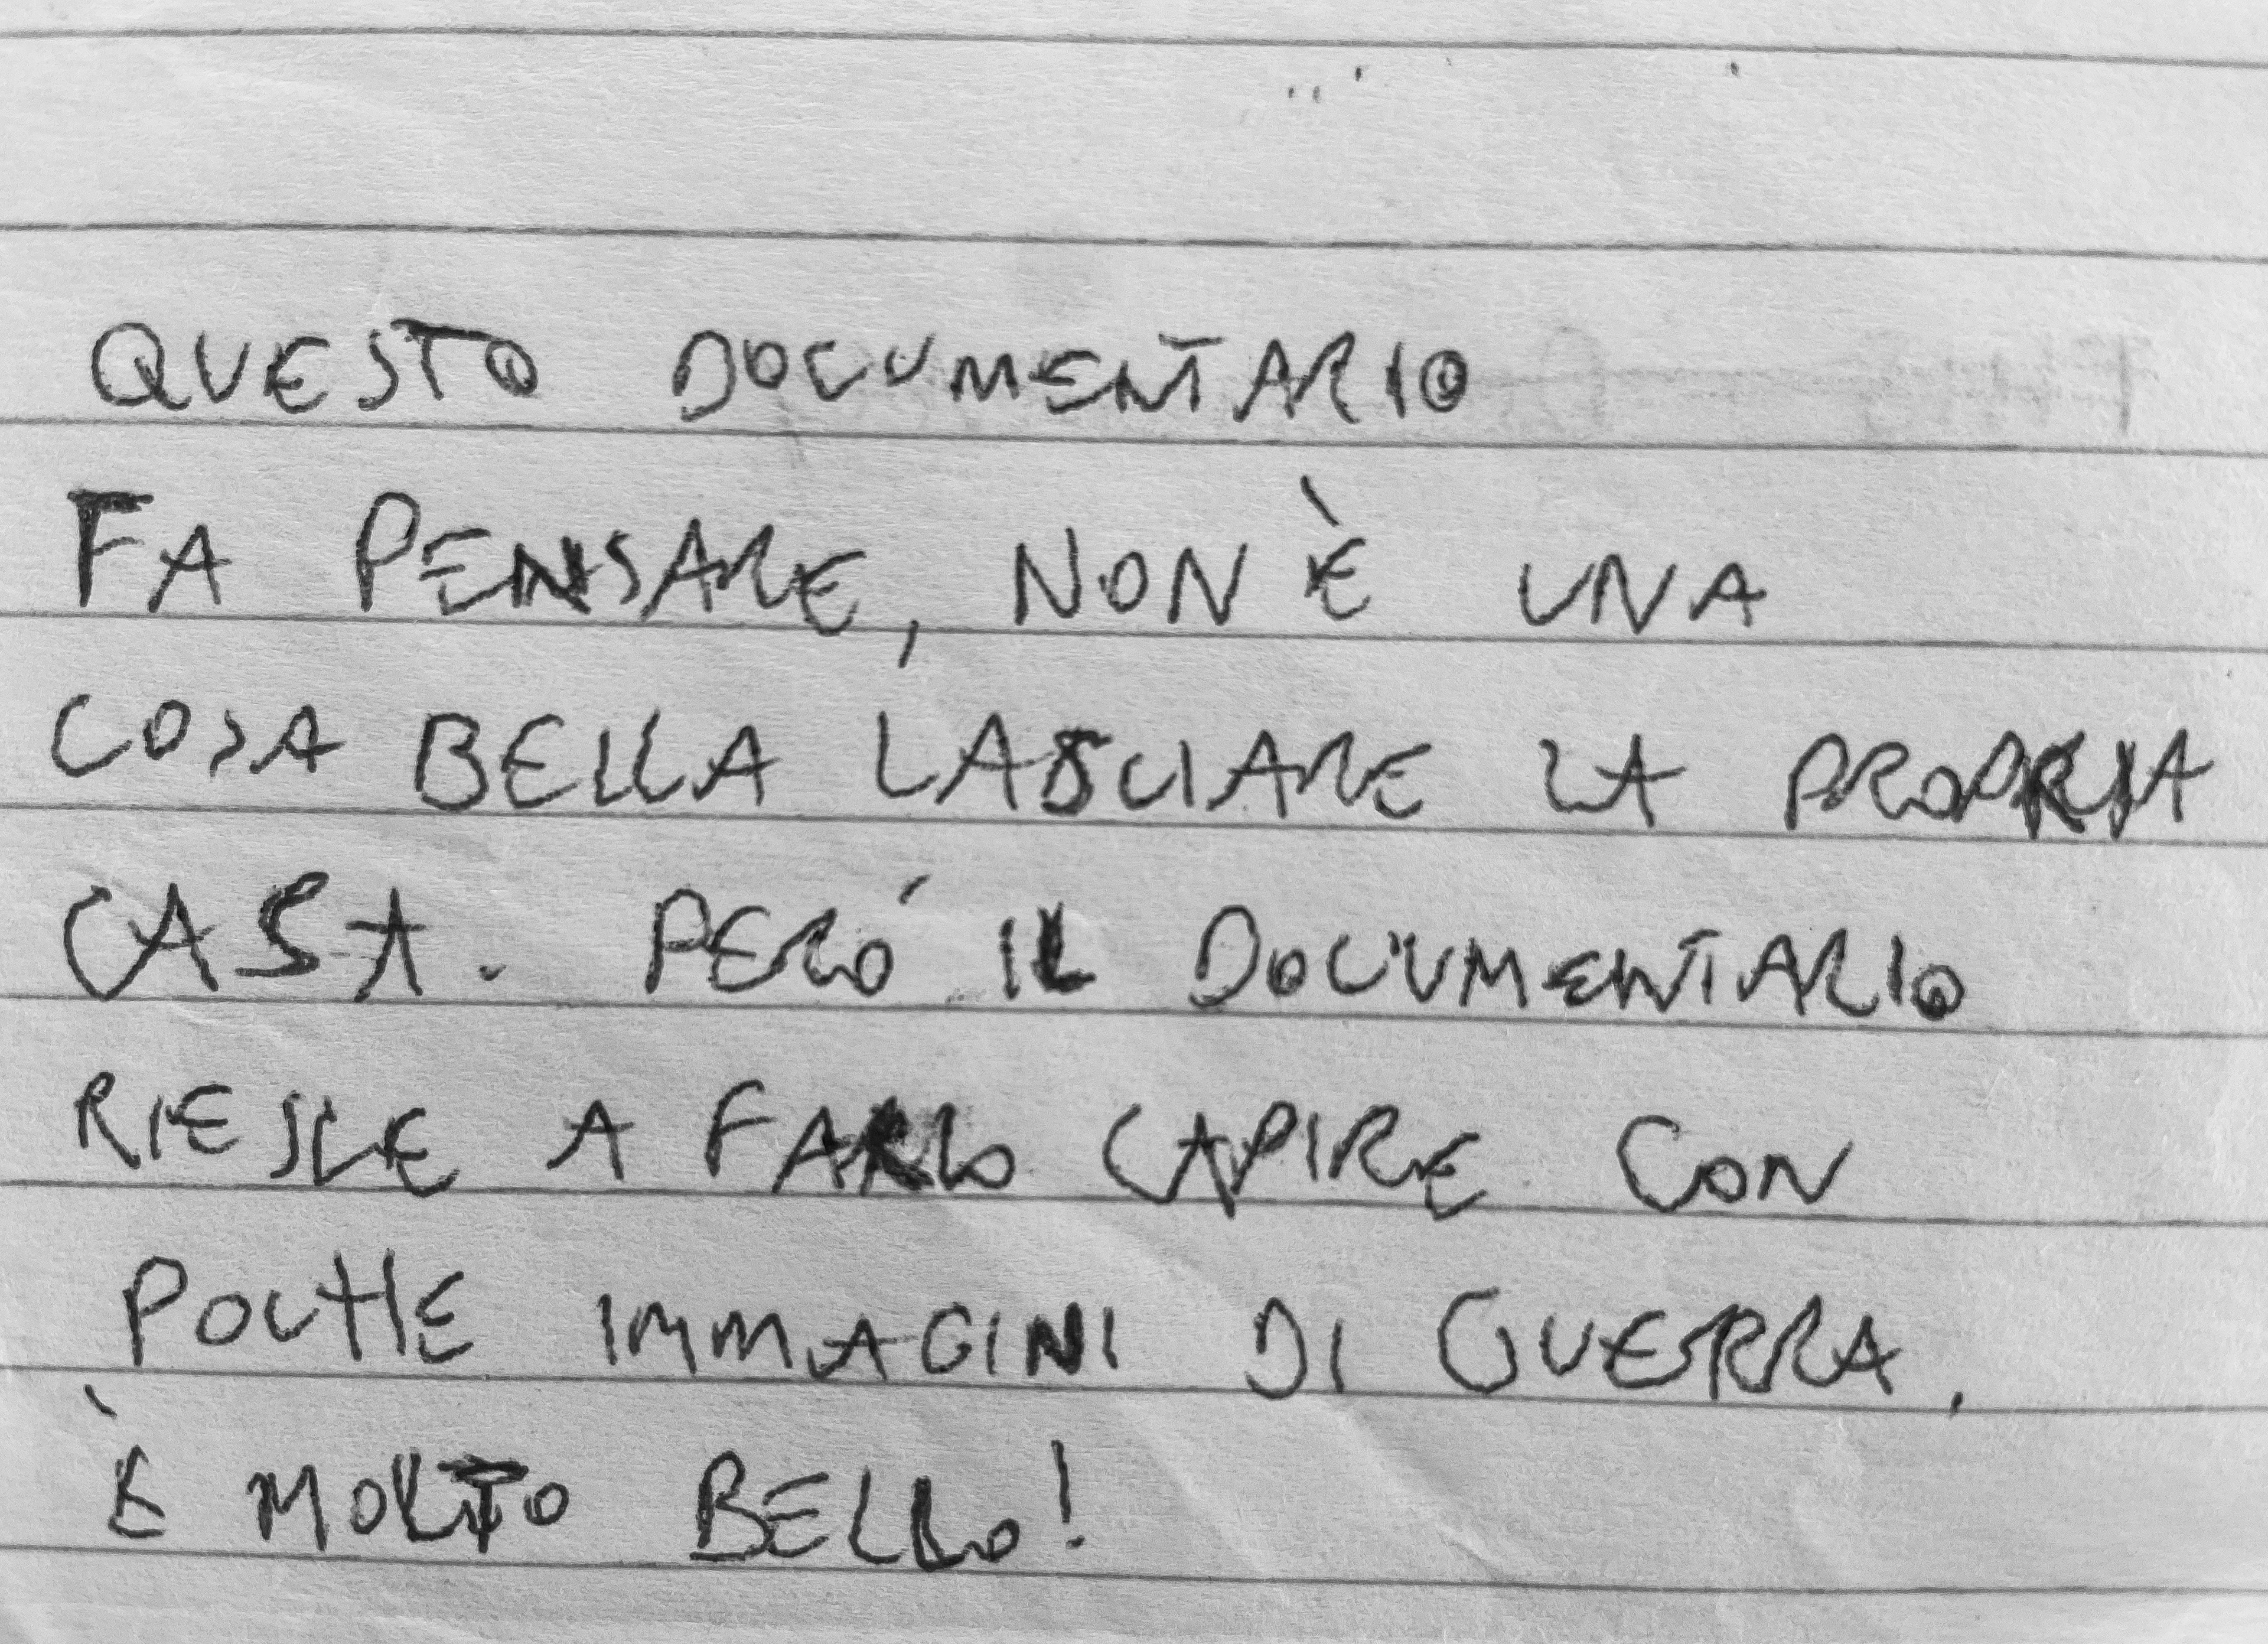 QUESTO DOCUMENTARIO
FA PENSARE, NON È UNA
COSA BELLA LASCIARE LA PROPRIA
CASA. PERÓ IL DOCUMENTARIO
RIESCE A FARLO CAPIRE CON
POCHE IMMAGINI DI GUERRA.
È MOLTO BELLO!